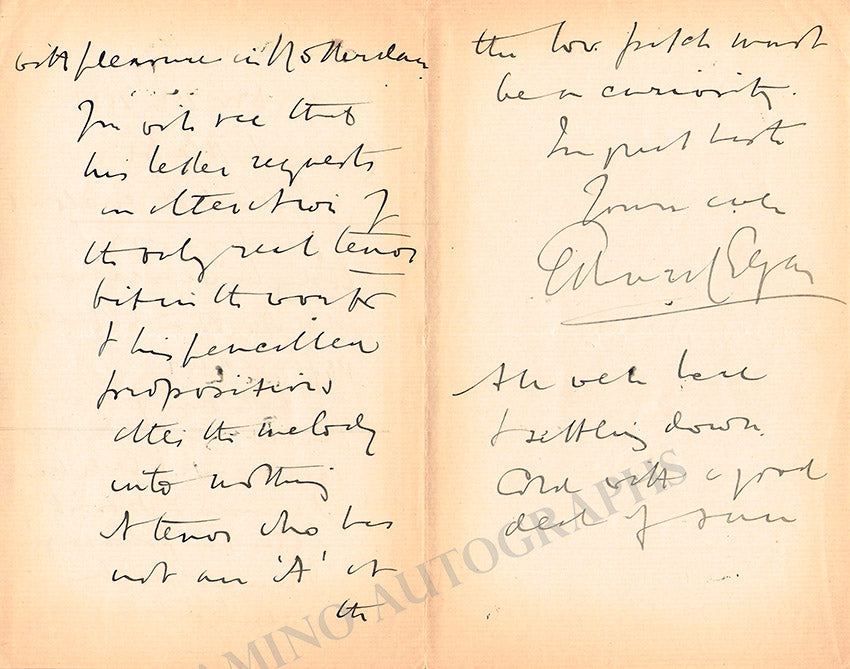 with pleasure in Rotterdam.
You will see that
his letter requests
an alteration of
the only real tenor
bit in the works
& his pencilled
propositions
alter the melody
into nothing
A tenor who has
not an 'A' at
the
the low pitch must
be a curiosity.
In great haste
Yours ever
Edward Elgar
All well here
& settling down.
Cold with a good
deal of sun
TAMINO AUTOGRAPHS